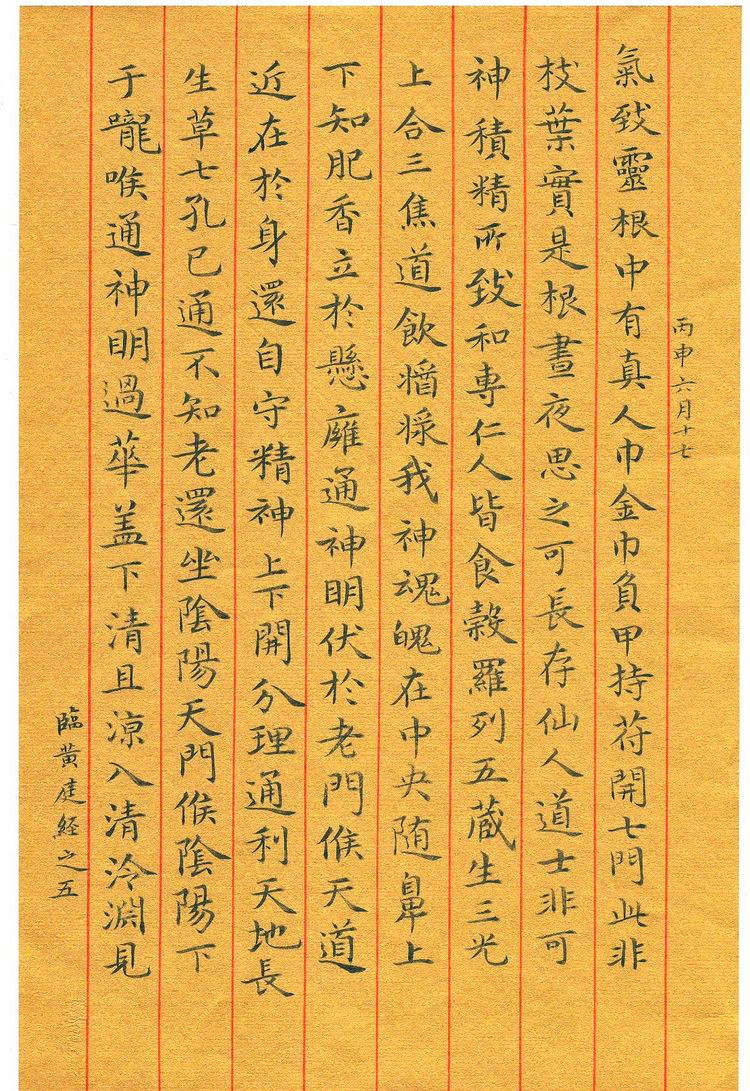 丙申六月十七
氣致靈根中有真人巾金巾負甲持苻開七門此非
枝葉實是根晝夜思之可長存仙人道士非可
神積精所致和專仁人皆食榖羅列五蔵生三光
上合三焦道飲㿄漿我神魂魄在中央随鼻上
下知肥香立於懸廱通神明伏於老門候天道
近在於身還自守精神上下開分理通利天地長
生草七孔已通不知老還坐陰陽天門候陰陽下
于嚨喉通神明過華盖下清且涼入清泠淵見
臨黃庭経之五